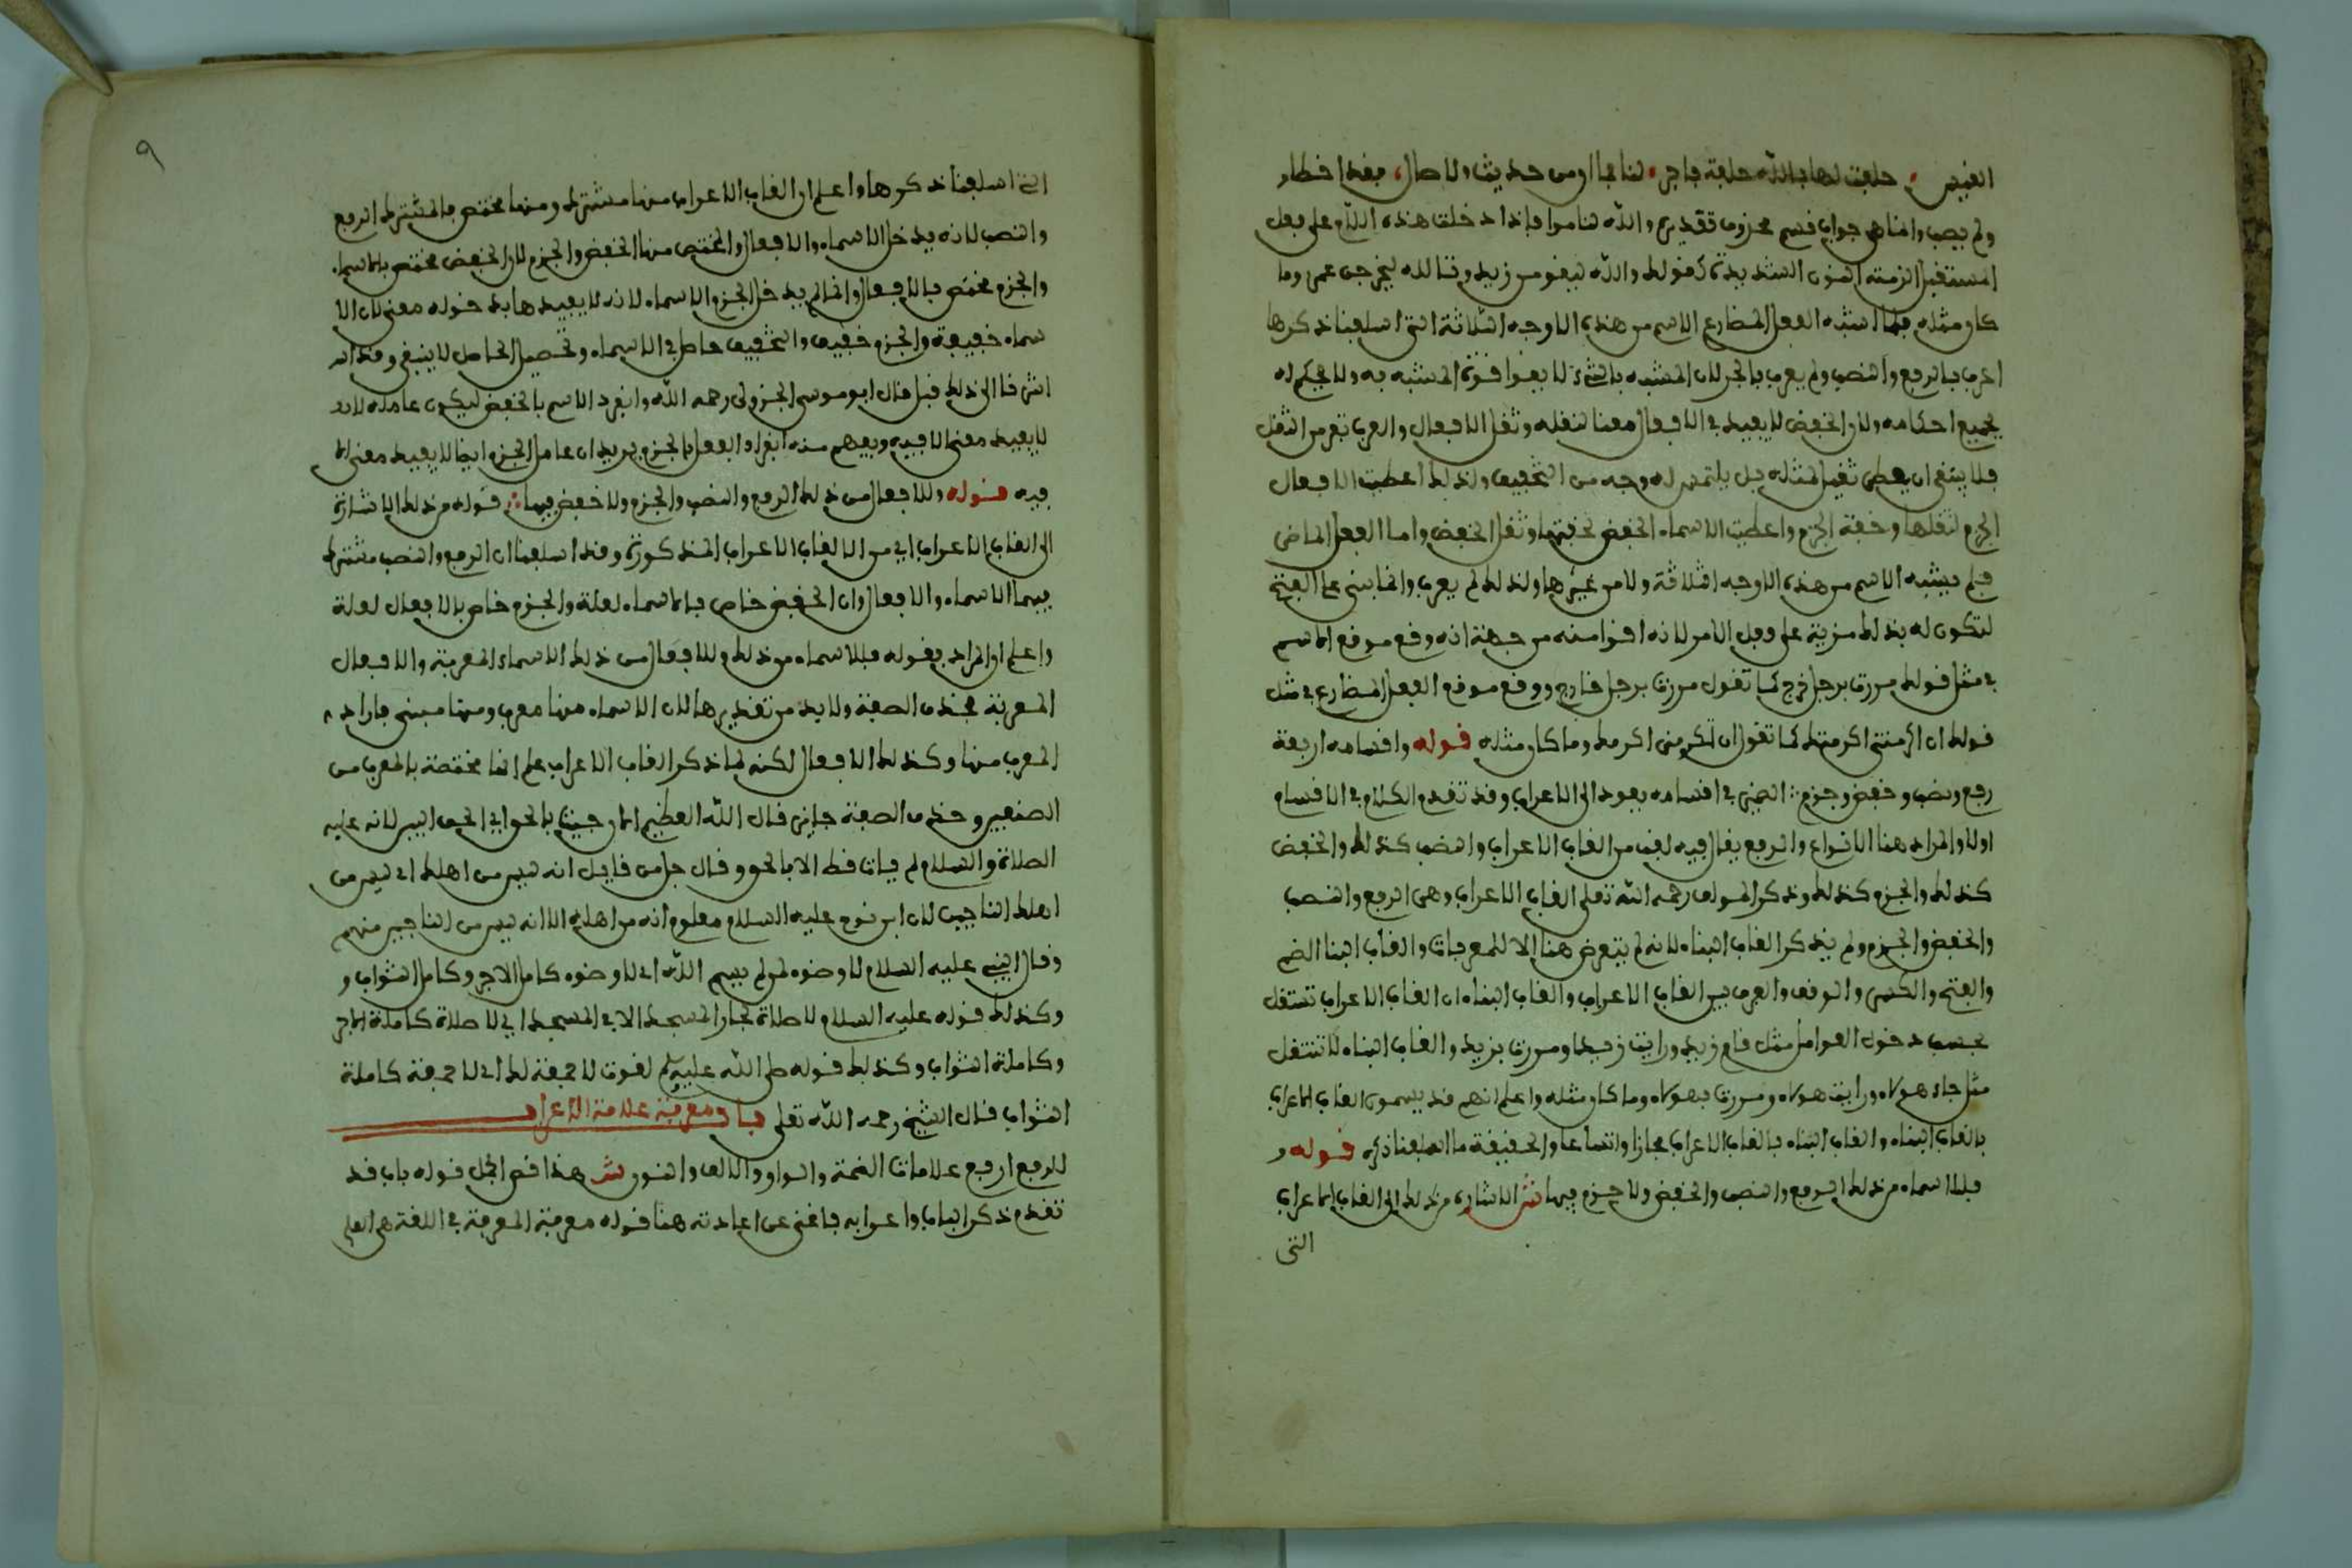 القيس حلفت لها بالله حلفة فاجر لناموا فما ان من حديث ولا صال فقد اخطا
ولم يصب وانما هي جواب قسم محذوف تقديره والله لناموا فإذا دخلت هذه اللام على فعل
المستقبل لزمته النون الشديدة كقولك والله ليقومن زيد وتالله ليخرجن عمرو وما
كان مثله فلما اشبه الفعل المضارع الاسم من هذه الاوجه الثلاثة التي اسلفنا ذكرها
اعرب بالرفع والنصب ولم يعرب بالجر لان المشبه بالشيء لا يقوا قوة المشبه به ولا يحكم له
بجميع احكامه ولان الخفض لا يفيد في الافعال معنا لثقله وثقل الافعال والعرب تفر من الثقل
فلا ينبغي ان يعطى ثقيل لمثله بل يلتمس له وجه من التخفيف ولذلك اعطيت الافعال
الجزم لثقلها وخفة الجزم واعطيت الاسماء الخفض لخفتها وثقل الخفض واما الفعل الماضي
فلم يشبه الاسم من هذه الاوجه الثلاثة ولا من غيرها ولذلك لم يعرب وانما بني على الفتح
لتكون له بذلك مزية على فعل الامر لانه اقوا منه من جهة انه وقع موقع الاسم
في مثل قولك مررت برجل خرج كما تقول مررت برجل خارج ووقع موقع الفعل المضارع في مثل
قولك ان اكرمتني اكرمتك كما تقول ان تكرمني اكرمك وما كان مثله قوله واقسامه اربعة
رفع ونصب وخفض وجزم الضمير في اقسامه يعود الى الاعراب وقد تقدم الكلام في الاقسام
اولا والمراد هنا الانواع والرفع يقال فيه لقب من القاب الاعراب والنصب كذلك والخفض
كذلك والجزم كذلك وذكر المولف رحمه الله تعلى القاب الاعراب وهي الرفع والنصب
والخفض والجزم ولم يذكر القاب البناء لانه لم يتعرض هنا الا للمعربات والقاب البنا الضم
والفتح والكسر والوقف والفرق بين القاب الاعراب والقاب البناء ان القاب الاعراب تنتقل
بحسب دخول العوامل مثل قام زيد ورايت زيدا ومررت بزيد والقاب البناء لا تنتقل
مثل جاء هولاء ورايت هولاء ومررت بهولاء وما كان مثله واعلم انهم قد يسمون القاب الاعراب
بالقاب البناء والقاب البناء بالقاب الاعراب مجازا واتساعا والحقيقة ما اسلفنا ذكره قوله و
فللاسماء من ذلك الرفع والنصب والخفض ولا جزم فيها ش الاشارة من ذلك الى القاب الاعراب
التي
التي اسلفنا ذكرها واعلم ان القاب الاعراب منها مشترك ومنها مختص فالمشترك الرفع
والنصب لانه يدخل الاسماء والافعال والمختص منها الخفض والجزم لان الخفض مختص بالاسماء
والجزم مختص بالافعال وانما لم يدخل الجزم الاسماء لانه لا يفيدها بدخوله معنى لان الا
سماء خفيفة والجزم خفيف والتخفيف حاصل في الاسماء وتحصيل الحاصل لا ينبغي وقد ا
شرنا الى ذلك قبل قال ابو موسى الجزولي رحمه الله وانفرد الاسم بالخفض ليكون عامله لا
لا يفيد معنى الا فيه ويفهم منه انفراد الفعل بالجزم يريد ان عامل الجزم ايضا لا يفيد معنى الا
فيه قوله وللافعال من ذلك الرفع والنصب والجزم ولا خفض فيها قوله من ذلك الاشارة
الى القاب الاعراب اي من الالقاب الاعراب المذكورة وقد اسلفنا ان الرفع والنصب مشترك
فيهما الاسماء والافعال وان الخفض خاص بالاسماء لعلة والجزم خاص بالافعال لعلة
واعلم ان المراد بقوله فللاسماء من ذلك وللافعال من ذلك الاسماء المعربة والافعال
المعربة فحذف الصفة ولا بد من تقديرها لان الاسماء منها معرب ومنها مبني فاراد
المعرب منها وكذلك الافعال لكنه لما ذكر القاب الاعراب علم انها مختصة بالمعرب من
الصنفين وحذف الصفة جايز قال الله العظيم الان جيت بالحق اي الحق البين لانه عليه
الصلاة والسلام لم يات قط الا بالحق وقال جل من قايل انه ليس من اهلك اي ليس من
اهلك الناجين لان ابن نوح عليه السلام معلوم انه من اهله الا انه ليس من الناجين منهم
وقال النبي عليه السلام لا وضوء لمن لم يسم الله اي لا وضوء كامل الاجر وكامل الثواب و
وكذلك قوله عليه السلام لا صلاة لجار المسجد الا في المسجد اي لا صلاة كاملة الاجر
وكاملة الثواب وكذلك قوله صلى الله عليه وسلم لغوت لا جمعة لك اي لا جمعة كاملة
الثواب قال الشيخ رحمه الله تعلى باب معرفة علامة الاعراب
للرفع اربع علامات الضمة والواو والالف والنون ش هذا قوله باب قد
تقدم ذكر الباب واعرابه فاغنى عن اعادته هنا قوله معرفة المعرفة في اللغة هي العلم
٩